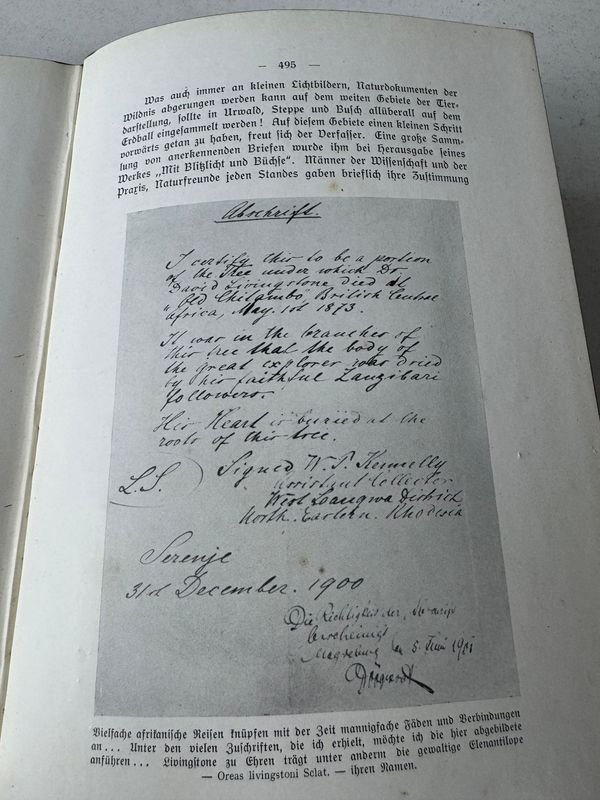 — 495 —
Was auch immer an kleinen Lichtbildern, Naturdokumenten der
Wildnis abgerungen werden kann auf dem weiten Gebiete der Tier-
darstellung, sollte in Urwald, Steppe und Busch allüberall auf dem
Erdball eingesammelt werden! Auf diesem Gebiete einen kleinen Schritt
vorwärts getan zu haben, freut sich der Verfasser. Eine große Samm-
lung von anerkennenden Briefen wurde ihm bei Herausgabe seines
Werkes „Mit Blitzlicht und Büchse“. Männer der Wissenschaft und der
Praxis, Naturfreunde jeden Standes gaben brieflich ihre Zustimmung
Abschrift.
I certify this to be a portion
of the Tree under which Dr.
David Livingstone died at
"Old Chitambo", British Central
Africa, May. 1st 1873.
It was in the branches of
this tree that the body of
the great explorer was dried
by his faithful Zanzibari
followers.
His Heart is buried at the
roots of this tree.
L.S.
Signed W. P. Kennelly
Assistant Collector
West Loangwa District
North. Eastern. Rhodesia
Serenje
31st December. 1900
Die Richtigkeit der
bescheinigt
Magdeburg den 5. Juni 1901
Vielfache afrikanische Reisen knüpfen mit der Zeit mannigfache Fäden und Verbindungen
an... Unter den vielen Zuschriften, die ich erhielt, möchte ich die hier abgebildete
anführen... Livingstone zu Ehren trägt unter anderm die gewaltige Elenantilope
— Oreas livingstoni Sclat. — ihren Namen.